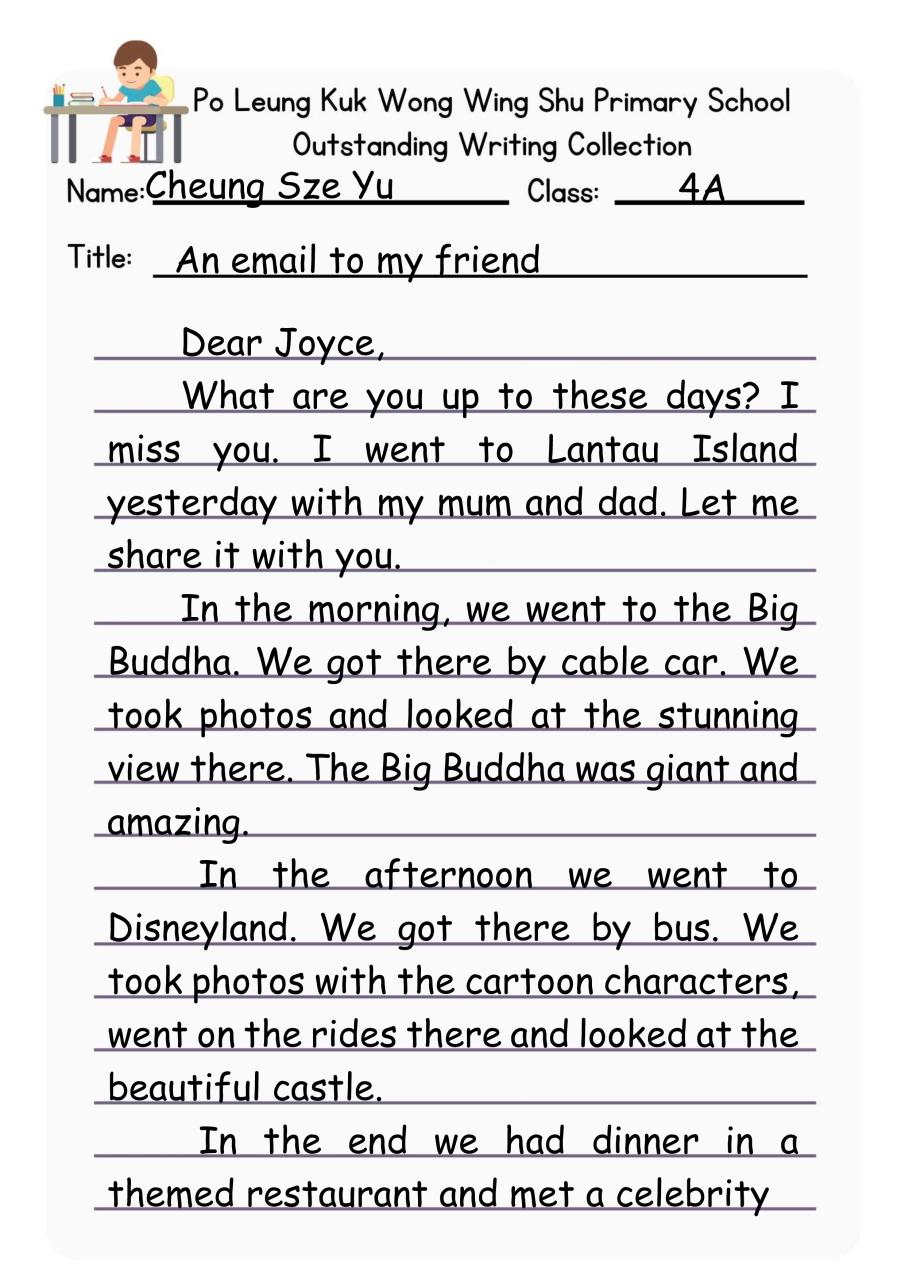 Po Leung Kuk Wong Wing Shu Primary School
Outstanding Writing Collection
Name: Cheung Sze Yu Class: 4A
Title: An email to my friend
Dear Joyce,
What are you up to these days? I
miss you. I went to Lantau Island
yesterday with my mum and dad. Let me
share it with you.
In the morning, we went to the Big
Buddha. We got there by cable car. We
took photos and looked at the stunning
view there. The Big Buddha was giant and
amazing.
In the afternoon we went to
Disneyland. We got there by bus. We
took photos with the cartoon characters,
went on the rides there and looked at the
beautiful castle.
In the end we had dinner in a
themed restaurant and met a celebrity